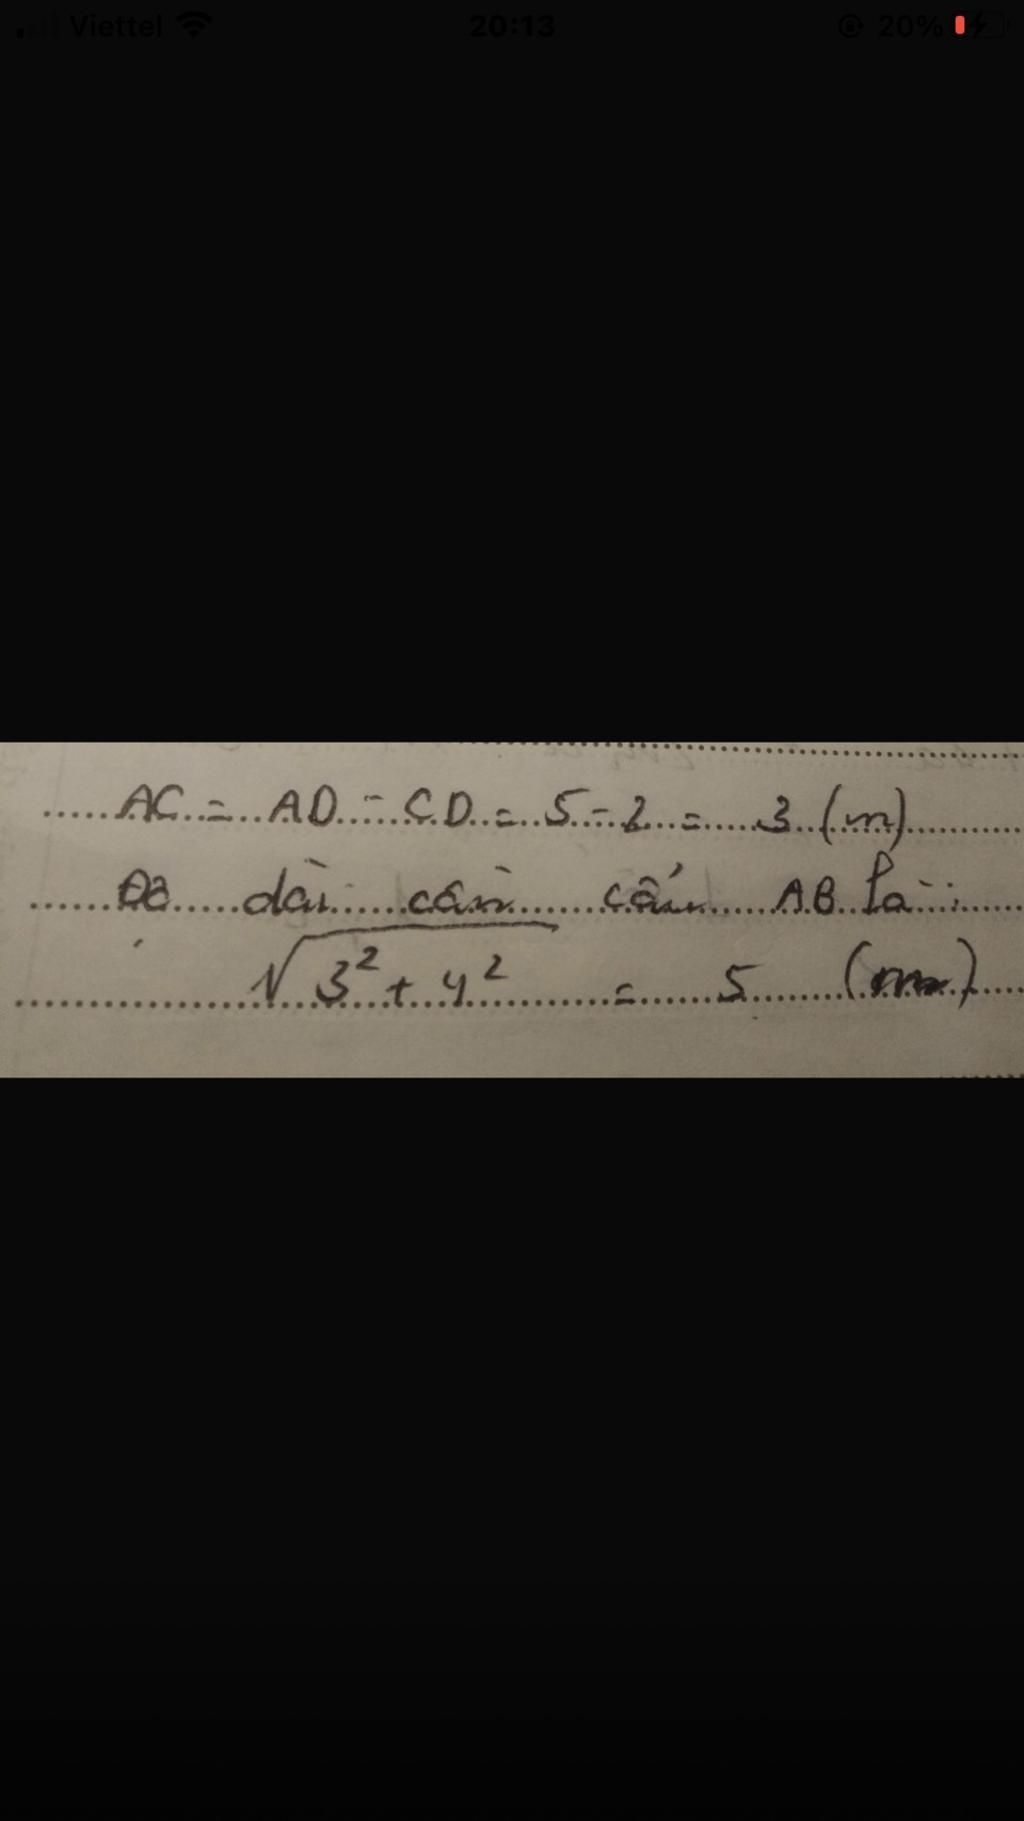 Viettel 20:13 20%
AC = AD - CD = 5 - 2 = 3 (m)
Độ dài cần cẩu AB là:
√3² + 4² = 5 (m)